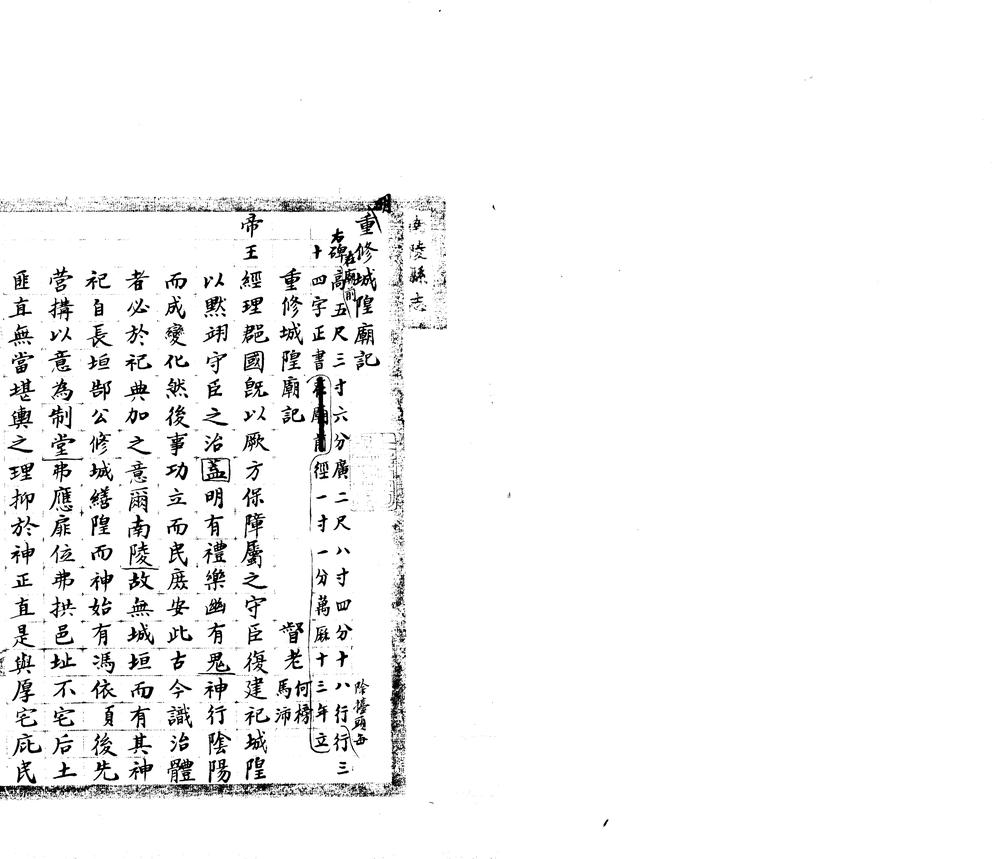 南陵縣志
明重修城隍廟記
右碑在廟前高五尺三寸六分廣二尺八寸四分十八行除擡頭每行三
十四字正書在廟前徑一寸一分萬厯十三年立
重修城隍廟記 督老何榜馬沛
帝王經理郡國旣以厥方保障屬之守臣復建祀城隍
以默翊守臣之治蓋明有禮樂幽有鬼神行陰陽
而成變化然後事功立而民庻安此古今識治體
者必於祀典加之意爾南陵故無城垣而有其神
祀自長垣郜公修城繕隍而神始有馮依頁後先
營搆以意為制堂弗應扉位弗拱邑址不宅后土
匪直無當堪輿之理抑於神正直是與厚宅庇民